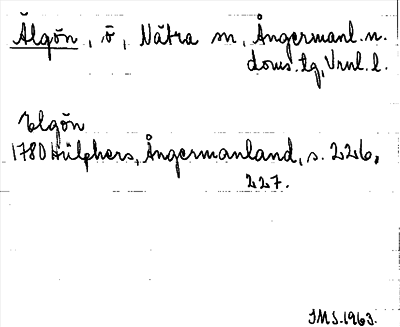 Älgön, ö, Nätra sn, Ångermanl. n.
doms.lg, Vrnl. l.
Elgön
1780 Hülphers, Ångermanland, s. 226,
227.
IMS.1963.